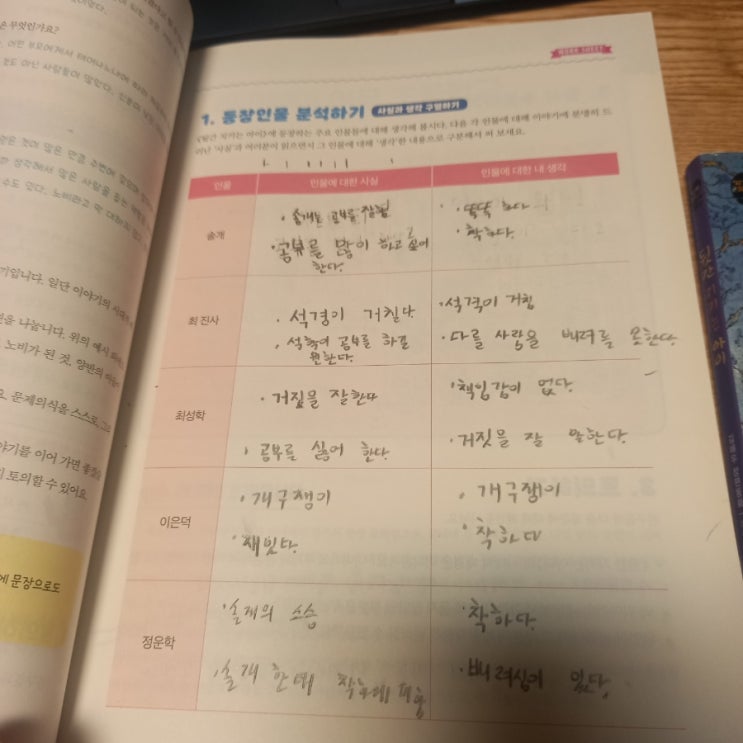 WORK SHEET
1. 등장인물 분석하기 사실과 생각 구별하기
《뒷간 지키는 아이》에 등장하는 주요 인물들에 대해 생각해 봅시다. 다음 각 인물에 대해 이야기에 분명히 드
러난 '사실'과 여러분이 읽으면서 그 인물에 대해 '생각'한 내용으로 구분해서 써 보세요.
인물 인물에 대한 사실 인물에 대한 내 생각
솔개
· 솔개는 공부를 잘함
· 공부를 많이 하고 싶어
한다.
· 똑똑 하다
· 착하다.
최 진사
· 석경이 거칠다
· 석학이 공부를 하길
원한다.
· 석격이 거침
· 다를 사람을 배려를 못한다.
최성학
· 거짖믈 잘한다
· 공부를 싫어 한다.
· 책임감이 없다.
· 거짓믈 잘 말한다.
이은덕
· 개구쟁이
· 재밌다.
· 개구쟁이
· 착하다
정운학
· 솔개의 스승
· 솔개 한데
· 착하다.
· 배려심이 있다.
은 무엇인가요?
것도 아닌 사람들이 많았다.
수도 있다. 노비라고 막 대하지
기입니다. 일단 이야기의 시대
을 나눕니다. 위의 예시
노비가 된 것, 양반의
요. 문제의식을 스스로,
야기를 이어 가면 좋겠
토의할 수 있어요
에 문장으로도
뒷간 지키는 아이